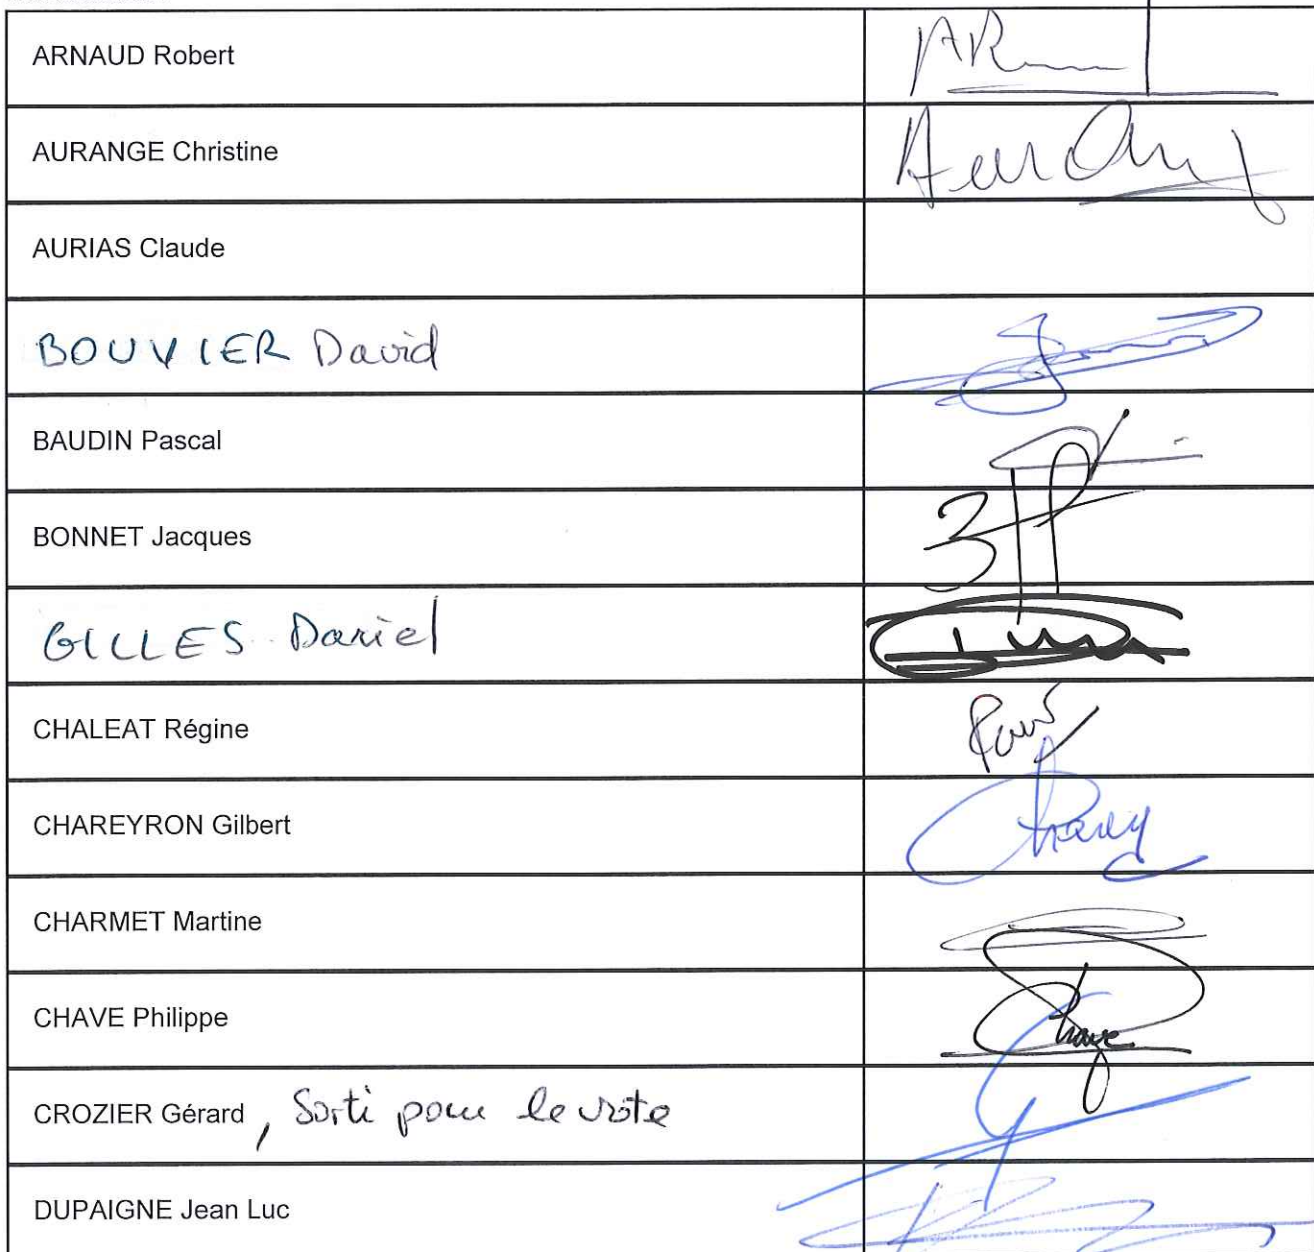 ARNAUD Robert
AURANGE Christine
AURIAS Claude
BOUVIER David
BAUDIN Pascal
BONNET Jacques
GILLES Daniel
CHALEAT Régine
CHAREYRON Gilbert
CHARMET Martine
CHAVE Philippe Chave
CROZIER Gérard, Sorti pour le vote
DUPAIGNE Jean Luc